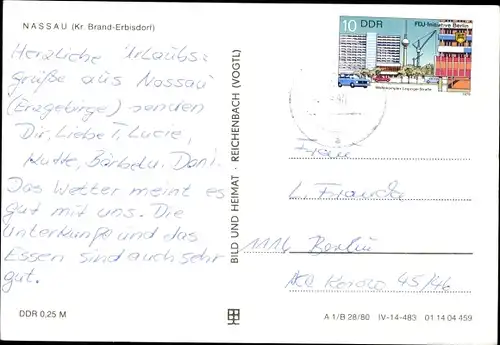 NASSAU (Kr. Brand-Erbisdorf)
Herzliche Urlaubs=
grüße aus Nassau
(Erzgebirge) senden
Dir, Liebe T. Lucie,
Mutte, Bärbel u. Dani.
Das Wetter meint es
gut mit uns. Die
Unterkunft und das
Essen sind auch sehr
gut.
DDR 0,25 M
BILD UND HEIMAT · REICHENBACH (VOGTL)
10 DDR
FDJ-Initiative Berlin
Wohnkomplex Leipziger Straße
1979
Frau
L. Francke
1116 Berlin
45/46
A 1/B 28/80 IV-14-483 01 14 04 459